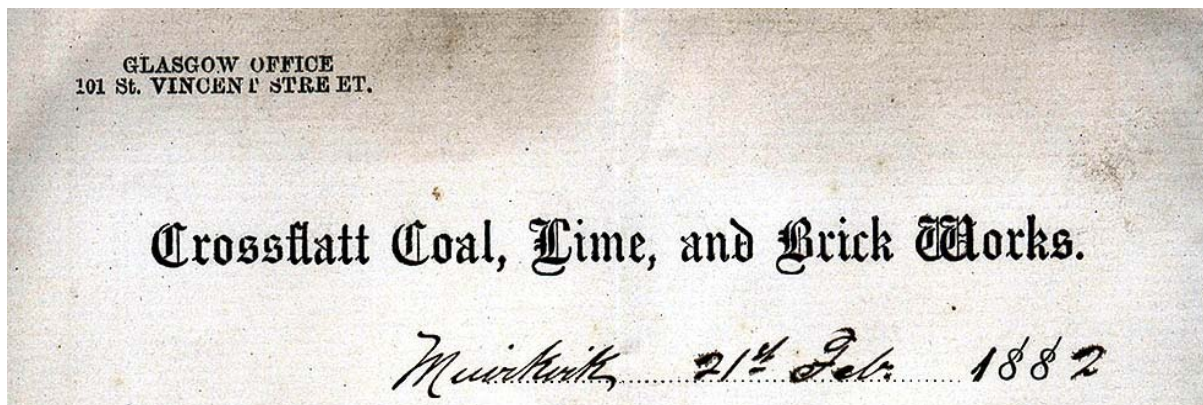 GLASGOW OFFICE
101 St. VINCENT STREET.
Crossflatt Coal, Lime, and Brick Works.
Muirkirk, 21st Feb. 1882